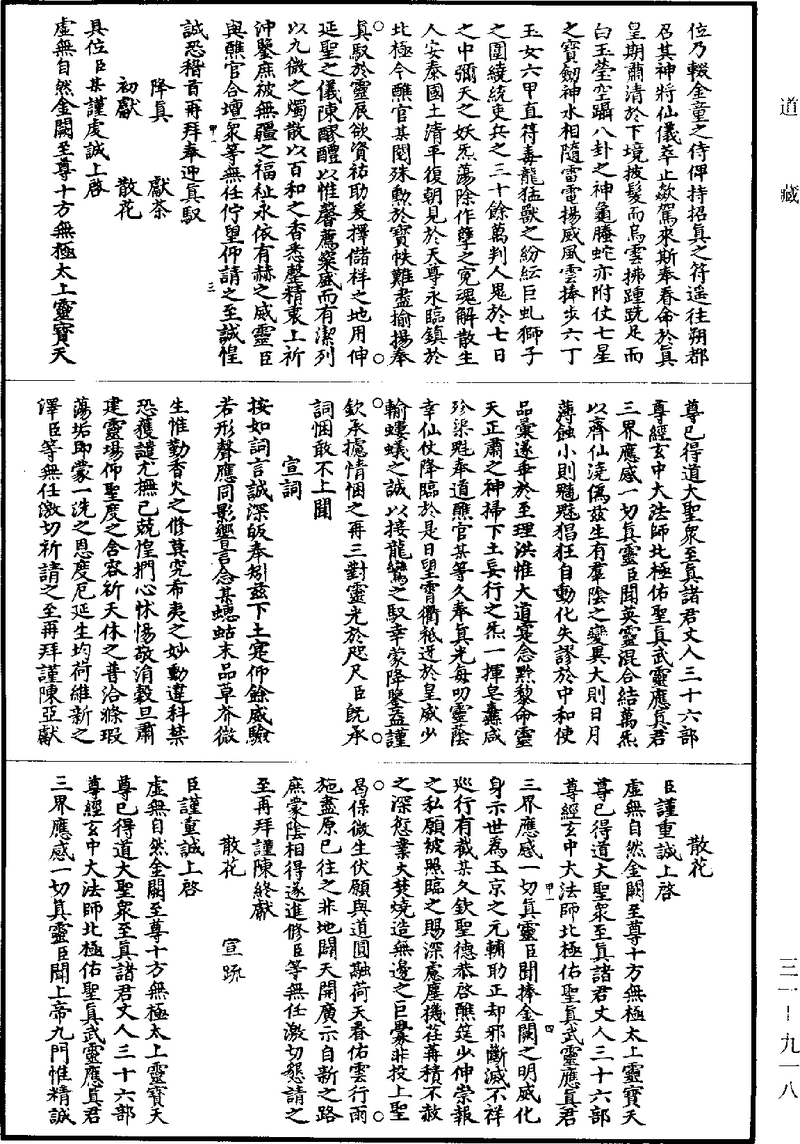 道藏
三一-九一八
位乃輟金童之侍俾持招真之符遥往朔都
召其神將仙儀萃止歘駕來斯奉春命於真
皇期肅清於下境披髮而烏雲拂踵跣足而
白玉瑩空躡八卦之神龜騰蛇亦附仗七星
之寶劒神水相隨雷電揚威風雲捧步六丁
玉女六甲直符毒龍猛獸之紛紜巨虬獅子
之圍繞統吏兵之三十餘萬判人鬼於七日
之中彌天之妖炁蕩除作孽之寃魂解散生
人安泰國土清平復朝見於天尊永臨鎮於
北極今醮官某閱殊勳於寶帙難盡揄揚奉
真馭於靈辰欲資祐助爰擇儲祥之地用伸
延聖之儀陳醪醴以惟馨薦粢盛而有潔列
以九微之燭散以百和之香悉整精衷上祈
沖鑒庶被無疆之福祉永依有赫之威靈臣
與醮官合壇衆等無任佇望仰請之至誠惶
誠恐稽首再拜奉迎真馭
降真　獻茶
初獻　散花
具位臣某謹虔誠上啓
虛無自然金闕至尊十方無極太上靈寶天
尊已得道大聖衆至真諸君丈人三十六部
尊經玄中大法師北極佑聖真武靈應真君
三界應感一切真靈臣聞英靈混合結萬炁
以齊仙澆僞茲生有羣陰之變異大則日月
薄蝕小則魑魅猖狂自動化失謬於中和使
品彙遂乖於至理洪惟大道寔念黔黎命靈
天正肅之神掃下土妄行之炁一揮皂纛咸
殄染魁奉道醮官某等久奉真光每叨靈蔭
幸仙仗降臨於是日望霄衢祗迓於皇威少
輸螻蟻之誠以接龍鸞之馭幸蒙降鑒益謹
欽承攄情悃之再三對靈光於咫尺臣旣承
詞悃敢不上聞
宣詞
按如詞言誠深皈奉矧茲下土寔仰餘威驗
若形聲應同影響言念某蟪蛄末品草芥微
生惟勤香火之修莫究希夷之妙動違科禁
恐獲譴尤撫己兢惶捫心怵惕敬涓穀旦肅
建靈場仰聖度之含容祈天休之普洽滌瑕
蕩垢即蒙一洗之恩度厄延生均荷維新之
澤臣等無任激切祈請之至再拜謹陳亞獻
散花
臣謹重誠上啓
虛無自然金闕至尊十方無極太上靈寶天
尊已得道大聖衆至真諸君丈人三十六部
尊經玄中大法師北極佑聖真武靈應真君
三界應感一切真靈臣聞捧金闕之明威化
身示世爲玉京之元輔助正却邪斷滅不祥
巡行有截某久欽聖德恭啓醮筵少伸崇報
之私願被照臨之賜深慮塵機荏苒積不赦
之深愆業火焚燒造無邊之巨釁非投上聖
曷保微生伏願與道圓融荷天眷佑雲行雨
施盡原已往之非地闢天開廣示自新之路
庶蒙陰相得遂進修臣等無任激切懇請之
至再拜謹陳終獻
散花　宣疏
臣謹重誠上啓
虛無自然金闕至尊十方無極太上靈寶天
尊已得道大聖衆至真諸君丈人三十六部
尊經玄中大法師北極佑聖真武靈應真君
三界應感一切真靈臣聞上帝九門惟精誠